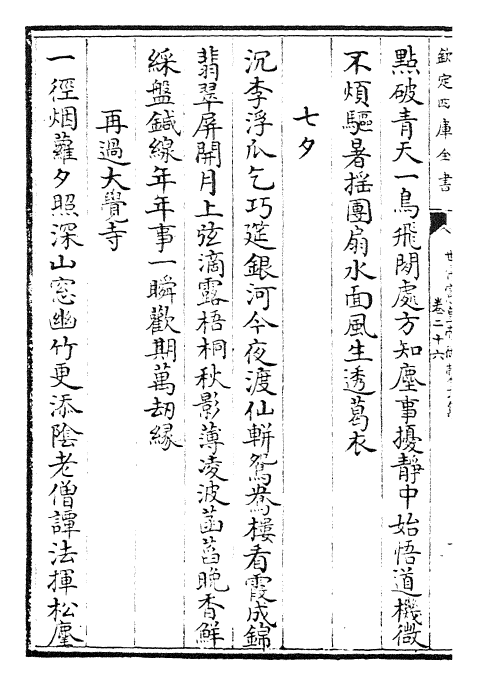 欽定四庫全書
卷二十六
點破青天一鳥飛閒處方知塵事擾靜中始悟道機微
不煩驅暑揺團扇水面風生透葛衣
七夕
沉李浮瓜乞巧筵銀河今夜渡仙軿鴛鴦樓看霞成錦
翡翠屏開月上弦滴露梧桐秋影薄凌波菡萏晚香鮮
綵盤鍼線年年事一瞬歡期萬劫緣
再過大覺寺
一徑烟蘿夕照深山窓幽竹更添陰老僧譚法揮松麈